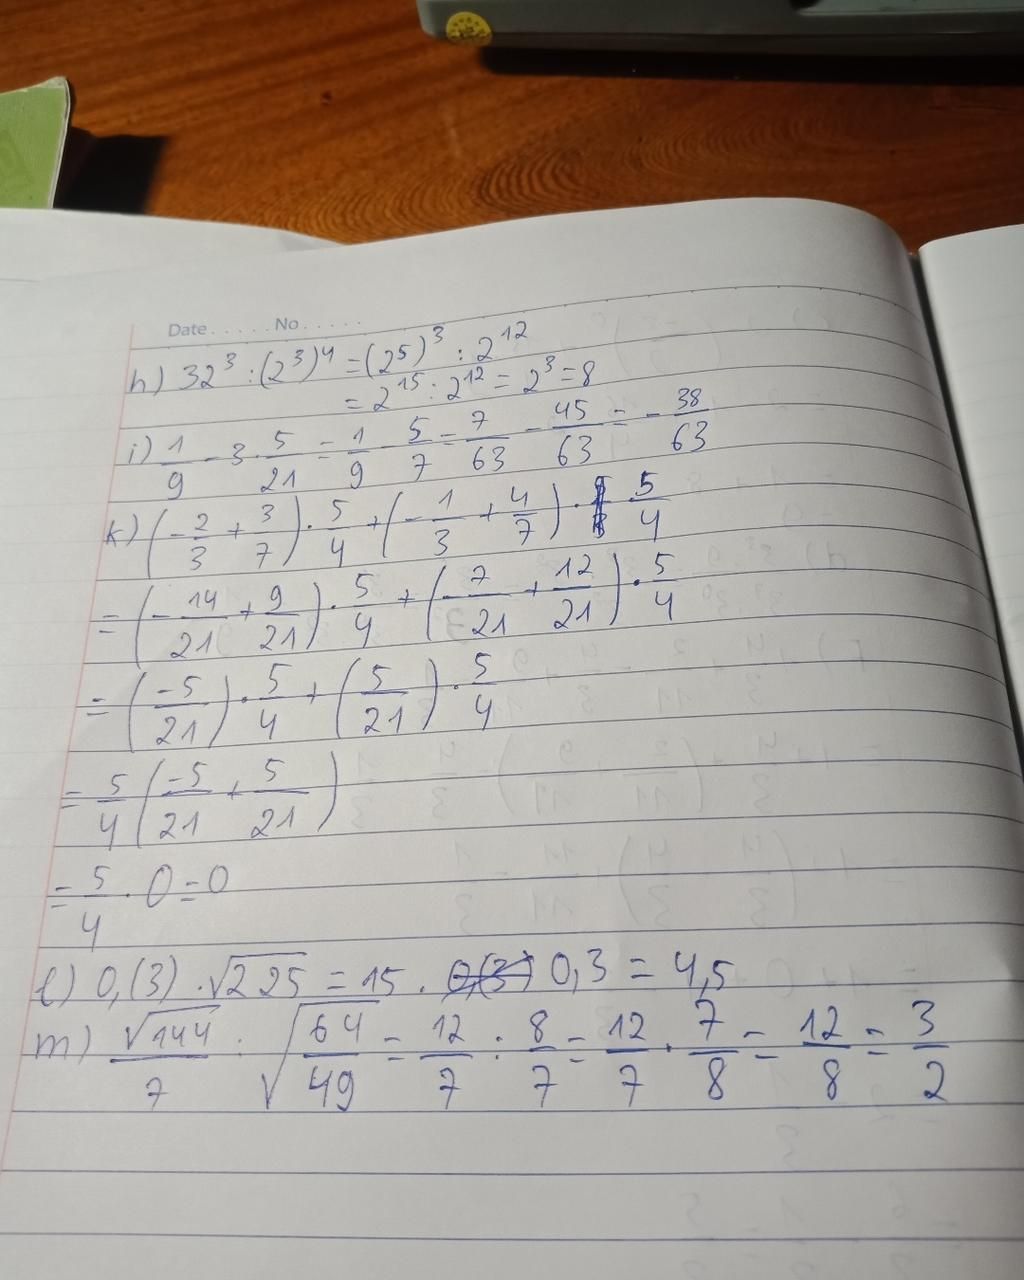 Date.....No.....
h) 32³ : (2³)⁴ = (2⁵)³ : 2¹²
= 2¹⁵ : 2¹² = 2³ = 8
i) 1/9 - 3 · 5/21 = 1/9 - 5/7 = 7/63 - 45/63 = - 38/63
k) (-2/3 + 3/7) · 5/4 + (-1/3 + 4/7) · 5/4
= (-14/21 + 9/21) · 5/4 + (-7/21 + 12/21) · 5/4
= (-5/21) · 5/4 + (5/21) · 5/4
= 5/4 (-5/21 + 5/21)
= 5/4 · 0 = 0
l) 0,(3) · √225 = 15 · 0,3 = 4,5
m) √144/7 : √(64/49) = 12/7 : 8/7 = 12/7 · 7/8 = 12/8 = 3/2